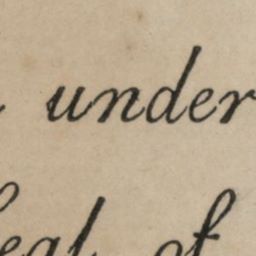 under
seal of